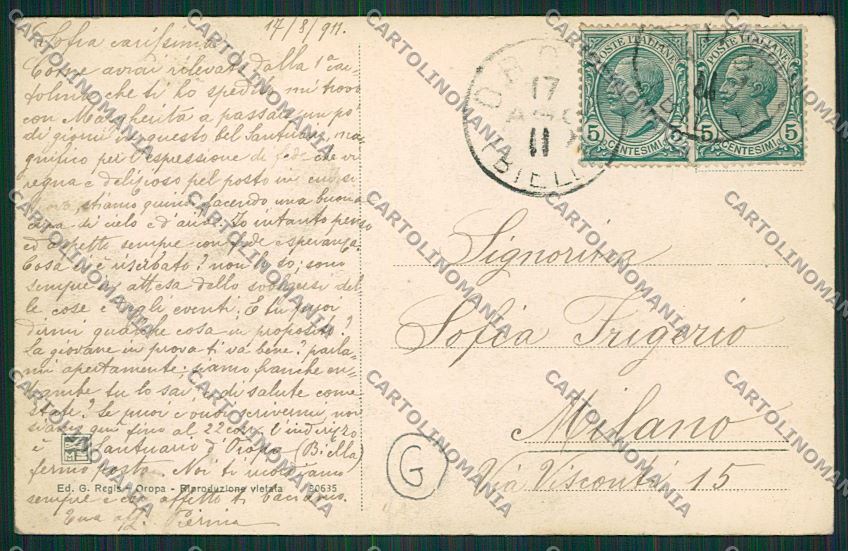 17/8/911.
Sofia carissima
Come avrai rilevato dalla 1ª car-
tolina che ti ho spedito mi trovo
con Margherita a passare un pò
di giorni in questo bel Santuario, ma-
gnifico per l'espressione di fede che vi
regna e delizioso pel posto in cui si
trova. stiamo quindi facendo una buona
cura di cielo e d'aria. Io intanto penso
ed aspetto sempre con fede e speranza.
Cosa mi è riserbato? non lo so; sono
sempre in attesa dello svolgersi del-
le cose e degli eventi. E tu puoi
dirmi qualche cosa in proposito?
La giovane in prova ti va bene? parla-
mi apertamente; siamo franche en-
trambe tu lo sai. di salute come
state? Se puoi e vuoi scrivermi, noi
stiamo qui fino al 22 corr. l'indirizzo
è Santuario d'Oropa (Biella)
fermo posta. Noi ti ricordiamo
sempre e con affetto ti baciamo.
Tua aff.
Ed. G. Regis - Oropa - Riproduzione vietata 30635
POSTE ITALIANE
5 CENTESIMI 5
POSTE ITALIANE
5 CENTESIMI 5
OROPA
17
AGO
11
(BIELLA)
Signorina
Sofia Frigerio
Milano
Via Visconti, 15
G
CARTOLINOMANIA